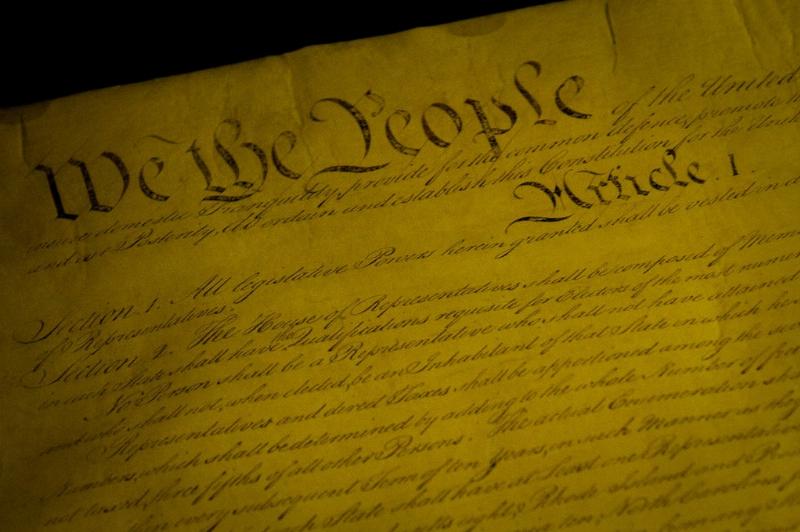 We the People of the United
insure domestic Tranquility, provide for the common defence, promote
and our Posterity, do ordain and establish this Constitution for the United
Article. I.
Section. 1. All legislative Powers herein granted shall be vested in a
of Representatives.
Section. 2. The House of Representatives shall be composed of Mem
in each State shall have the Qualifications requisite for Electors of the most numer
No Person shall be a Representative who shall not have attained
and who shall not, when elected, be an Inhabitant of that State in which he
Representatives and direct Taxes shall be apportioned among the seve
Numbers, which shall be determined by adding to the whole Number of free
not taxed, three fifths of all other Persons. The actual Enumeration sha
every subsequent Term of ten Years, in such Manner as they
each State shall have at Least one Representative
eight, Rhode Island and Pro
North Carolina